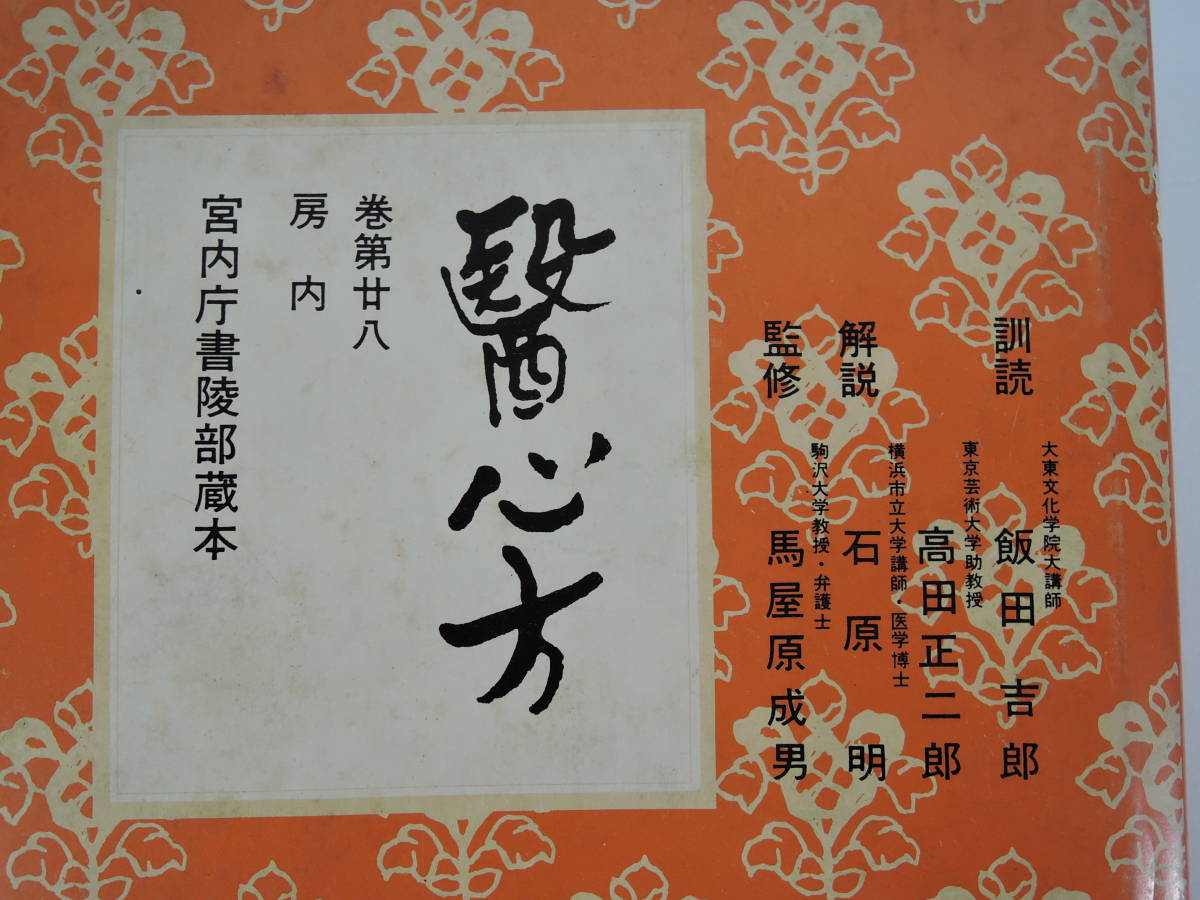 訓読
大東文化学院大講師
飯田吉郎
東京芸術大学助教授
高田正二郎
解説
横浜市立大学講師・医学博士
石原明
監修
駒沢大学教授・弁護士
馬屋原成男
醫心方
巻第廿八
房内
宮内庁書陵部蔵本